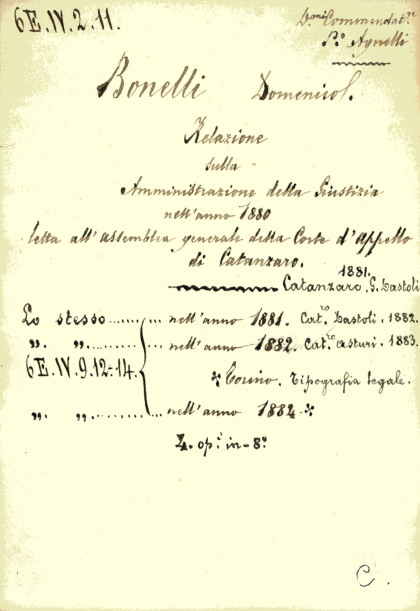 6E.IV.2.11.
Doni Commendat.re
P.o Agnelli
Bonelli Domenico.
Relazione
sulla
Amministrazione della Giustizia
nell'anno 1880
letta all'assemblea generale della Corte d'appello
di Catanzaro.
1881.
Catanzaro. G. Bastoli
Lo stesso......... nell'anno 1881. Cat.ro Bastoli. 1882.
„ „ ........ nell'anno 1882. Cat.ro Asturi. 1883.
6E.IV.9.12-14.
Torino. Tipografia legale.
„ „ ......... nell'anno 1884
4. op.i in-8.o
C.